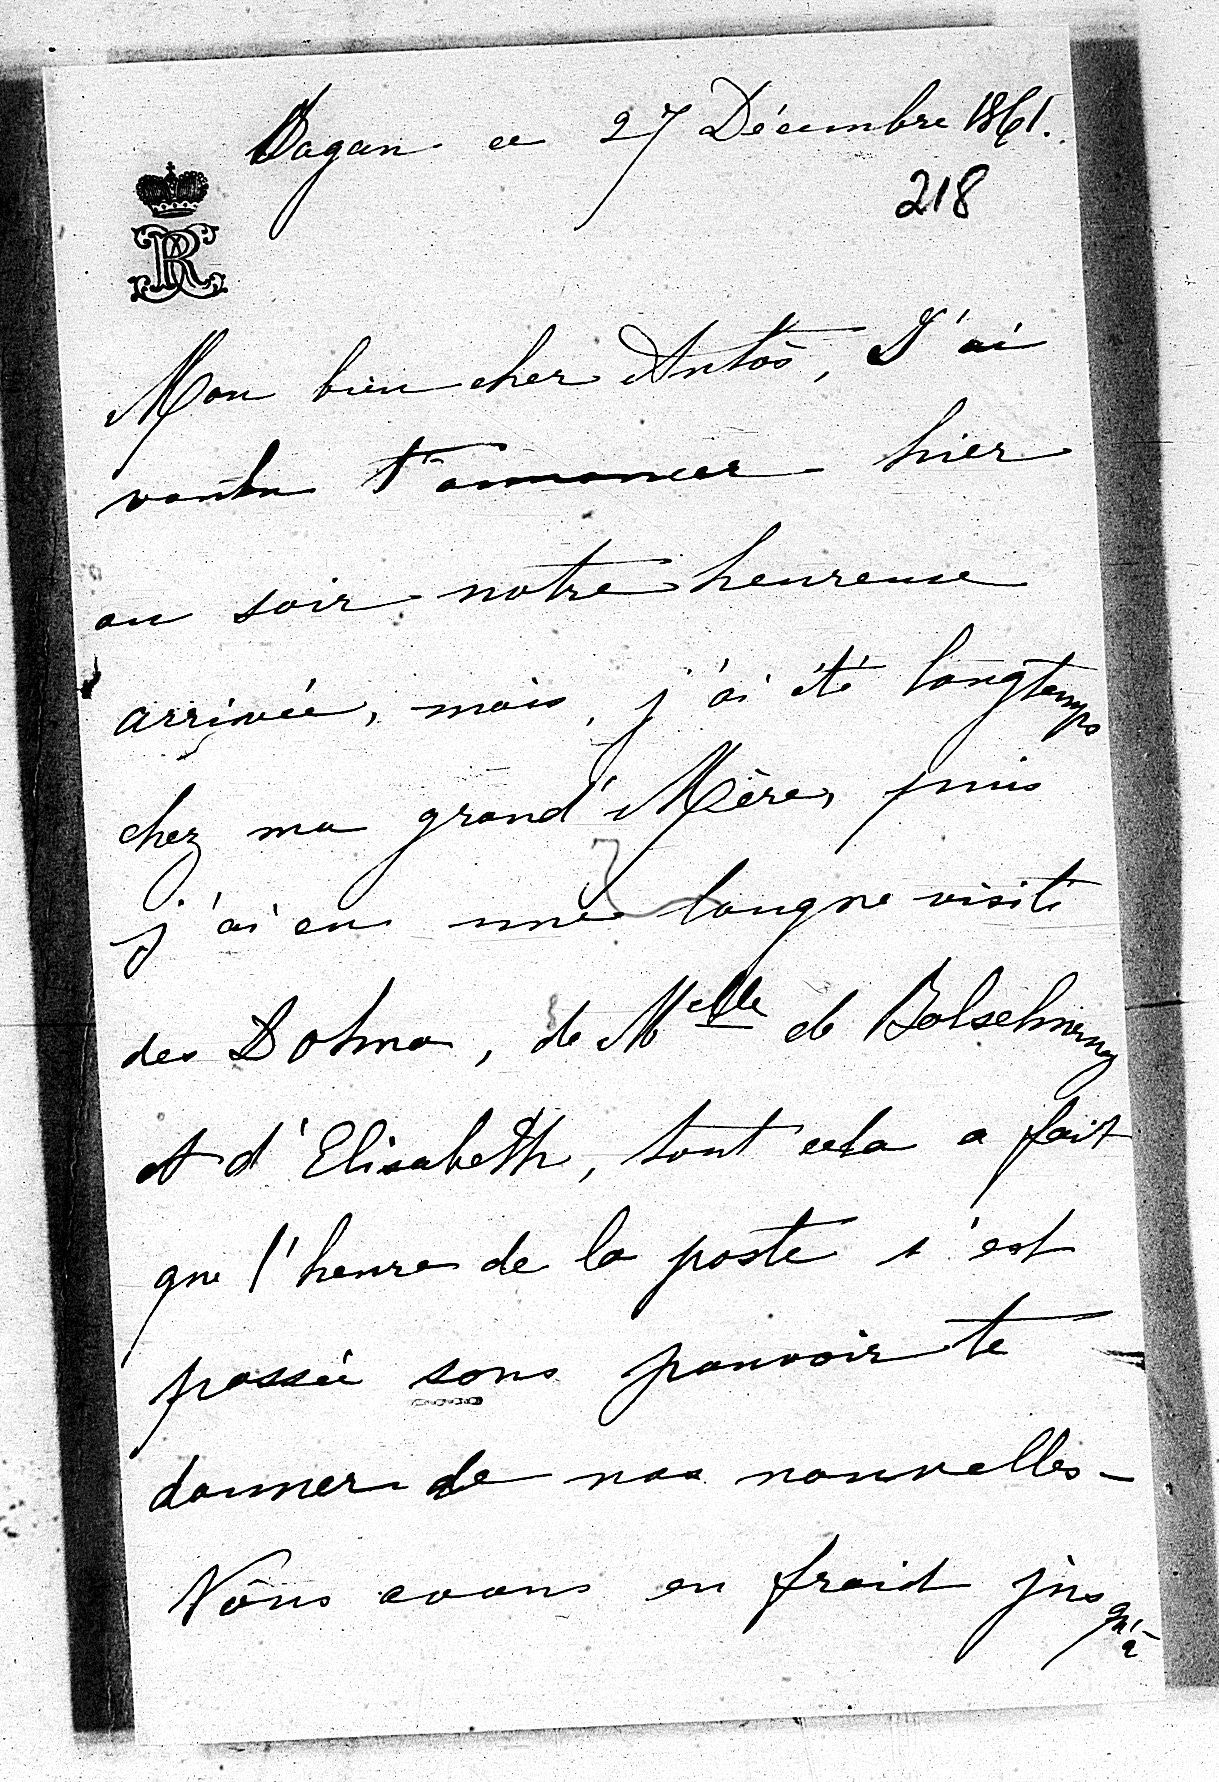 Sagan ce 27 Décembre 1861.
218
Mon bien cher Antos, J'ai
voulu t'annoncer hier
au soir notre heureuse
arrivée, mais, j'ai été longtemps
chez ma grand'Mère, puis
j'ai eu une longue visite
des Dohna, de Melle de
et d'Elisabeth, tout cela a fait
que l'heure de la poste s'est
passée sans pouvoir te
donner de nos nouvelles -
Nous avons eu froid jusqu'à